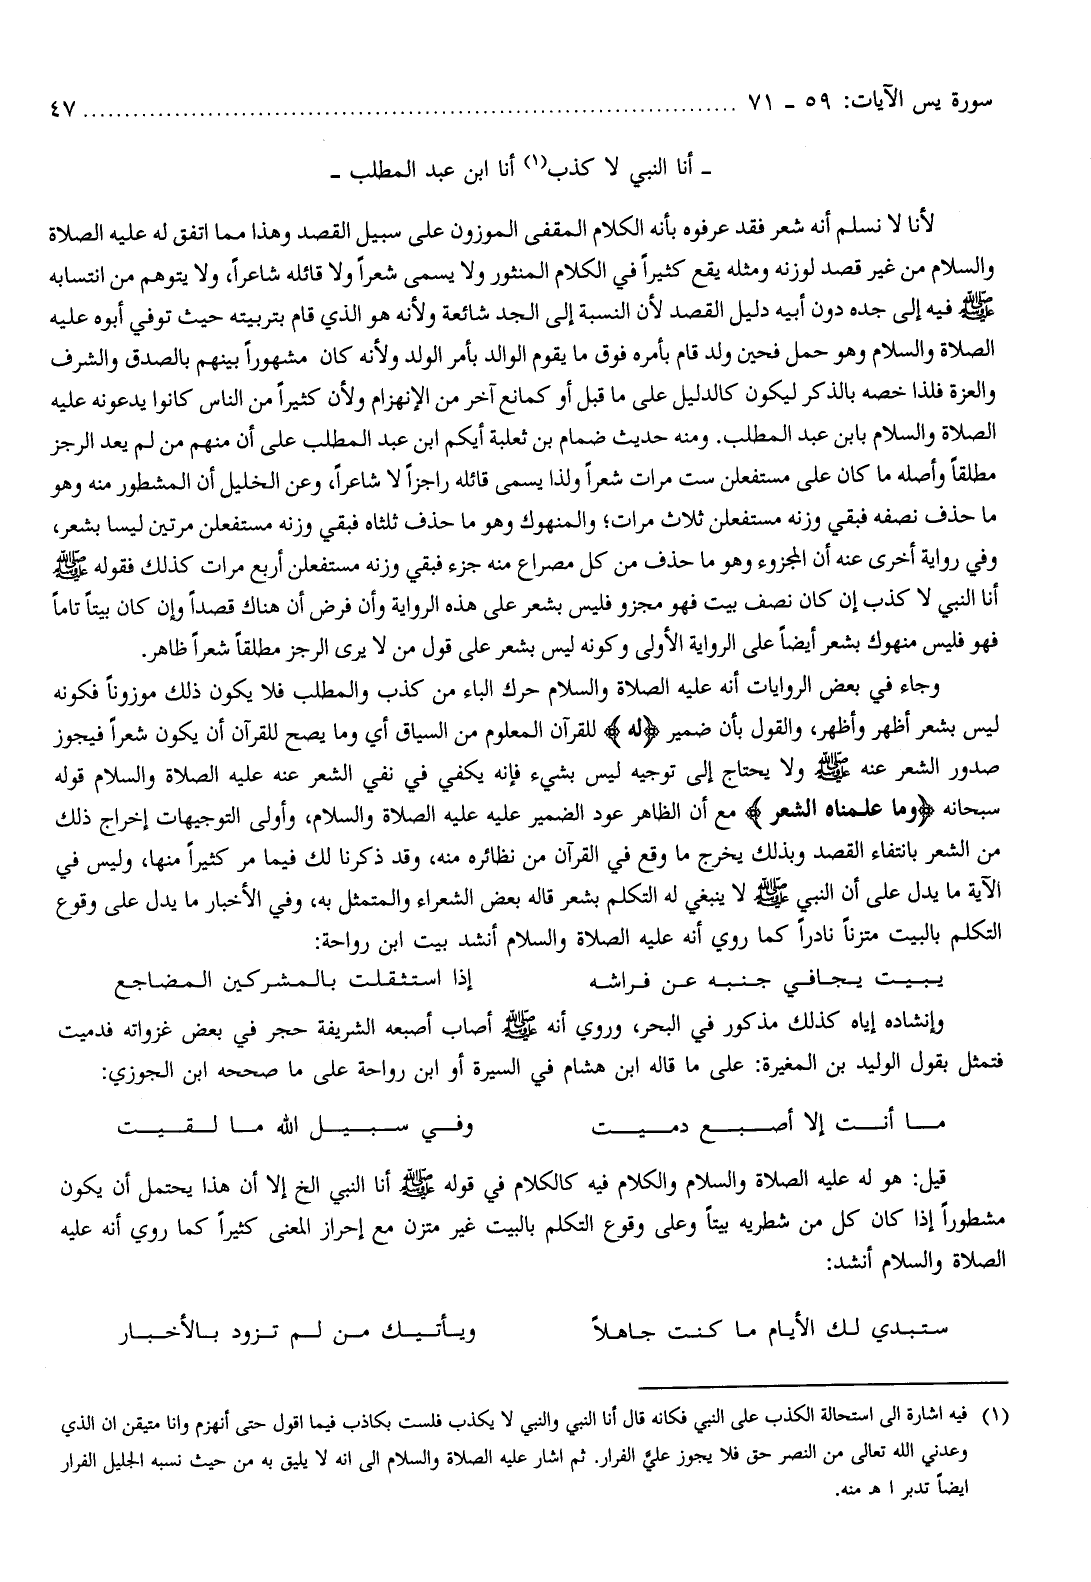 سورة يس الآيات: ٥٩ - ٧١ ................................................................................ ٤٧
- أنا النبي لا كذب(١) أنا ابن عبد المطلب -
لأنا لا نسلم أنه شعر فقد عرفوه بأنه الكلام المقفى الموزون على سبيل القصد وهذا مما اتفق له عليه الصلاة
والسلام من غير قصد لوزنه ومثله يقع كثيراً في الكلام المنثور ولا يسمى شعراً ولا قائله شاعراً، ولا يتوهم من انتسابه
ﷺ فيه إلى جده دون أبيه دليل القصد لأن النسبة إلى الجد شائعة ولأنه هو الذي قام بتربيته حيث توفي أبوه عليه
الصلاة والسلام وهو حمل فحين ولد قام بأمره فوق ما يقوم الوالد بأمر الولد ولأنه كان مشهوراً بينهم بالصدق والشرف
والعزة فلذا خصه بالذكر ليكون كالدليل على ما قبل أو كمانع آخر من الإنهزام ولأن كثيراً من الناس كانوا يدعونه عليه
الصلاة والسلام بابن عبد المطلب. ومنه حديث ضمام بن ثعلبة أيكم ابن عبد المطلب على أن منهم من لم يعد الرجز
مطلقاً وأصله ما كان على مستفعلن ست مرات شعراً ولذا يسمى قائله راجزاً لا شاعراً، وعن الخليل أن المشطور منه وهو
ما حذف نصفه فبقي وزنه مستفعلن ثلاث مرات؛ والمنهوك وهو ما حذف ثلثاه فبقي وزنه مستفعلن مرتين ليسا بشعر،
وفي رواية أخرى عنه أن المجزوء وهو ما حذف من كل مصراع منه جزء فبقي وزنه مستفعلن أربع مرات كذلك فقوله ﷺ
أنا النبي لا كذب إن كان نصف بيت فهو مجزو فليس بشعر على هذه الرواية وأن فرض أن هناك قصداً وإن كان بيتاً تاماً
فهو فليس منهوك بشعر أيضاً على الرواية الأولى وكونه ليس بشعر على قول من لا يرى الرجز مطلقاً شعراً ظاهر.
وجاء في بعض الروايات أنه عليه الصلاة والسلام حرك الباء من كذب والمطلب فلا يكون ذلك موزوناً فكونه
ليس بشعر أظهر وأظهر، والقول بأن ضمير ﴿له﴾ للقرآن المعلوم من السياق أي وما يصح للقرآن أن يكون شعراً فيجوز
صدور الشعر عنه ﷺ ولا يحتاج إلى توجيه ليس بشيء فإنه يكفي في نفي الشعر عنه عليه الصلاة والسلام قوله
سبحانه ﴿وما علمناه الشعر﴾ مع أن الظاهر عود الضمير عليه عليه الصلاة والسلام، وأولى التوجيهات إخراج ذلك
من الشعر بانتفاء القصد وبذلك يخرج ما وقع في القرآن من نظائره منه، وقد ذكرنا لك فيما مر كثيراً منها، وليس في
الآية ما يدل على أن النبي ﷺ لا ينبغي له التكلم بشعر قاله بعض الشعراء والمتمثل به، وفي الأخبار ما يدل على وقوع
التكلم بالبيت متزناً نادراً كما روي أنه عليه الصلاة والسلام أنشد بيت ابن رواحة:
يبيت يجافي جنبه عن فراشه إذا استثقلت بالمشركين المضاجع
وإنشاده إياه كذلك مذكور في البحر، وروي أنه ﷺ أصاب أصبعه الشريفة حجر في بعض غزواته فدميت
فتمثل بقول الوليد بن المغيرة: على ما قاله ابن هشام في السيرة أو ابن رواحة على ما صححه ابن الجوزي:
ما أنت إلا أصبع دميت وفي سبيل الله ما لقيت
قيل: هو له عليه الصلاة والسلام والكلام فيه كالكلام في قوله ﷺ أنا النبي الخ إلا أن هذا يحتمل أن يكون
مشطوراً إذا كان كل من شطريه بيتاً وعلى وقوع التكلم بالبيت غير متزن مع إحراز المعنى كثيراً كما روي أنه عليه
الصلاة والسلام أنشد:
ستبدي لك الأيام ما كنت جاهلاً ويأتيك من لم تزود بالأخبار
(١) فيه اشارة الى استحالة الكذب على النبي فكانه قال أنا النبي والنبي لا يكذب فلست بكاذب فيما اقول حتى أنهزم وانا متيقن ان الذي
وعدني الله تعالى من النصر حق فلا يجوز عليَّ الفرار. ثم اشار عليه الصلاة والسلام الى انه لا يليق به من حيث نسبه الجليل الفرار
ايضاً تدبر ا هـ منه.